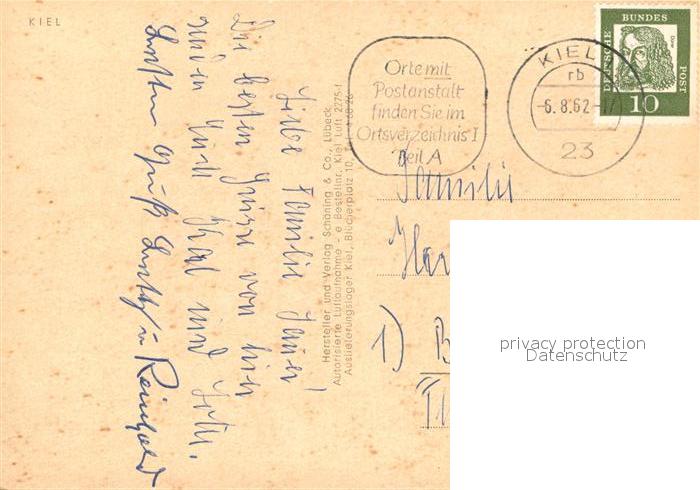 KIEL
Liebe Familie Sauer!
Die besten Grüsse von hier
senden Euch Karl und
Grüß Lotte u. Reinhold
Hersteller und Verlag Schöning & Co., Lübeck
Autorisierte Luftaufnahme - e Bestellnr. Kiel Luft 2275-f
Auslieferungslager Kiel, Blücherplatz 10,
Orte mit
Postanstalt
finden Sie im
Ortsverzeichnis I
Teil A
KIEL
rb
-6.8.62-
23
DEUTSCHE BUNDES POST
Dürer
10
Familie
Har
1) B
privacy protection
Datenschutz